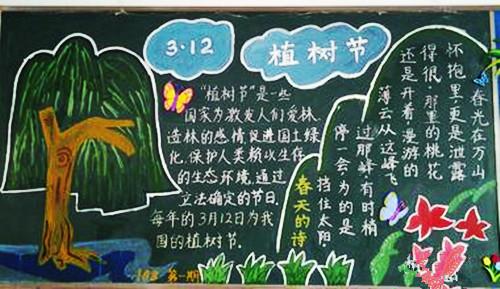 3·12
植树节
"植树节"是一些
国家为激发人们爱林、
造林的感情,促进国土绿
化,保护人类赖以生存
的生态环境,通过
立法确定的节日,
每年的3月12日为我
国的植树节。
春天的诗
春光在万山
怀抱里,更是泄露
得很。那里的桃花
还是开着。漫游的
薄云从这峰飞
过那峰,有时稍
停一会,为的是
挡住太阳
第一期